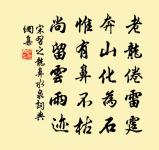 老龍倦雷霆
奔山化為石
惟有鼻不枯
尚留雲雨迹
宋習之龍鼻水泉詞典
網集